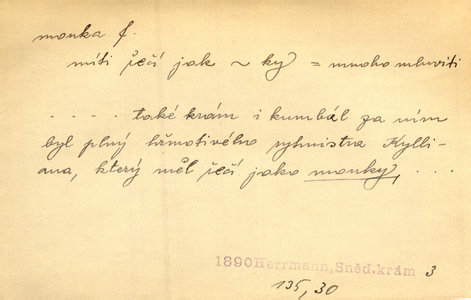 mouka f.
míti řečí jak ~ ky = mnoho mluviti
. . . . . také krám i kumbál za ním
byl plný hřmotivého rybnistra Kylli-
ana, který měl řečí jako mouky, . . . .
1890 Herrmann, Sněd. krám 3
135, 30